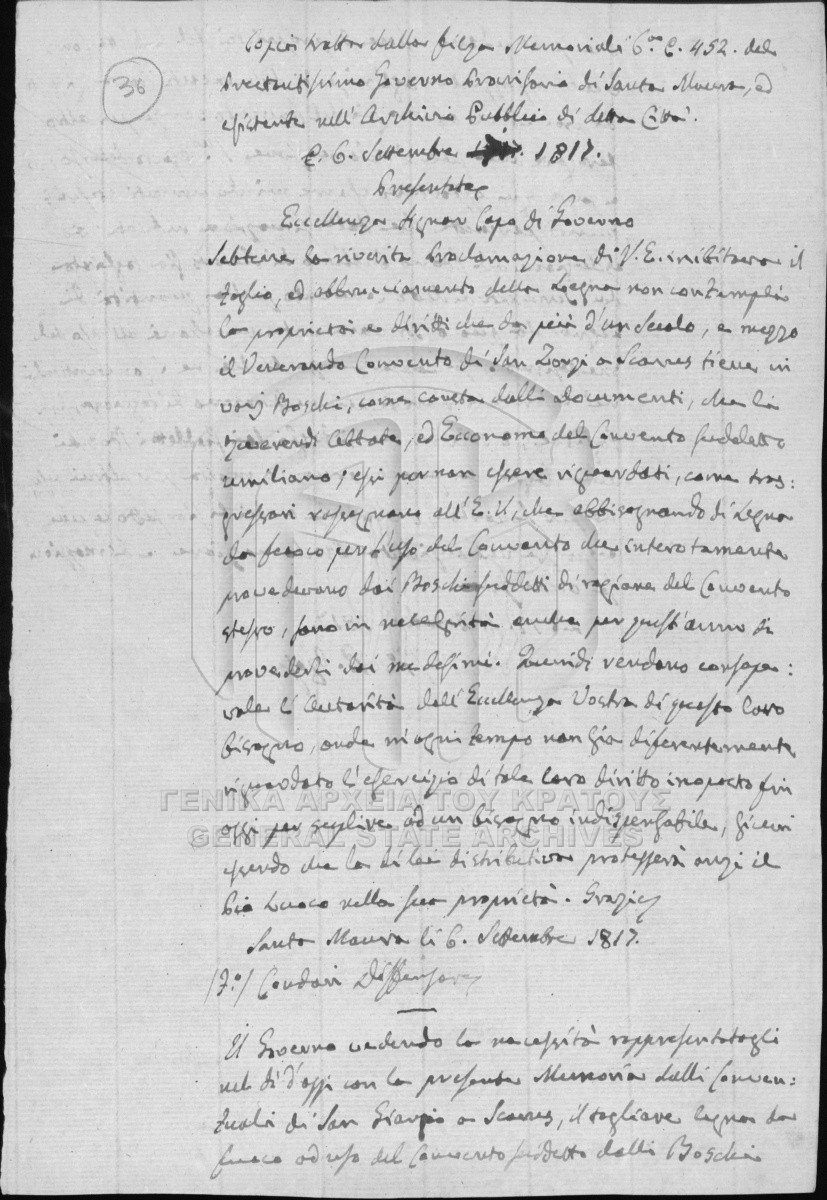 36
Copia tratta dalla filza Memoriali 6.° C. 452. del
Prestantissimo Governo Provisorio di Santa Maura, ed
esistente nell' Archivio Pubblico di detta Città.
C. 6. Settembre 1817.
Presentata
Eccellenza Signor Capo di Governo
Sebbene la riverita Proclamazione di V. E. inibitoria il
Taglio, ed abbrucciamento della Legna non contempla
la proprietà e diritti che da più d'un Secolo, e mezzo
il Venerando Convento di San Zorzi a Scarus tiene in
varj Boschi, come consta dalli Documenti, che li
Reverendi Abbate, ed Economo del Convento suddetto
umiliano; essi per non essere riguardati, come tras:
gressori rassegnano all' E. V., che abbisognando di Legna
da fuoco per l'uso del Convento che interotamente
provedevano dai Boschi suddetti di ragione del Convento
stesso, sono in necessità anche per quest'anno di
provederli dai medesimi. Quindi rendono consape:
vole l'Autorità dell'Eccellenza Vostra di questo loro
bisogno, onde in ogni tempo non sia diferentemente
riguardato l'esercizio di tale loro diritto inoposto fin
oggi per suplire ad un bisogno indispensabile, sicuri
essendo che la di lei distributiva proteggerà anzi il
Pio Luoco nella sua proprietà. Grazie
Santa Maura li 6. Settembre 1817.
/F.°/ Condari Diffensore
Il Governo vedendo la necessità rappresentatagli
nel dì d'oggi con la presente Memoria dalli Conven:
tuali di San Giorgio a Scarus, il tagliare legna da
fuoco ad uso del Convento suddetto dalli Boschi
ΓΕΝΙΚΑ ΑΡΧΕΙΑ ΤΟΥ ΚΡΑΤΟΥΣ
GENERAL STATE ARCHIVES